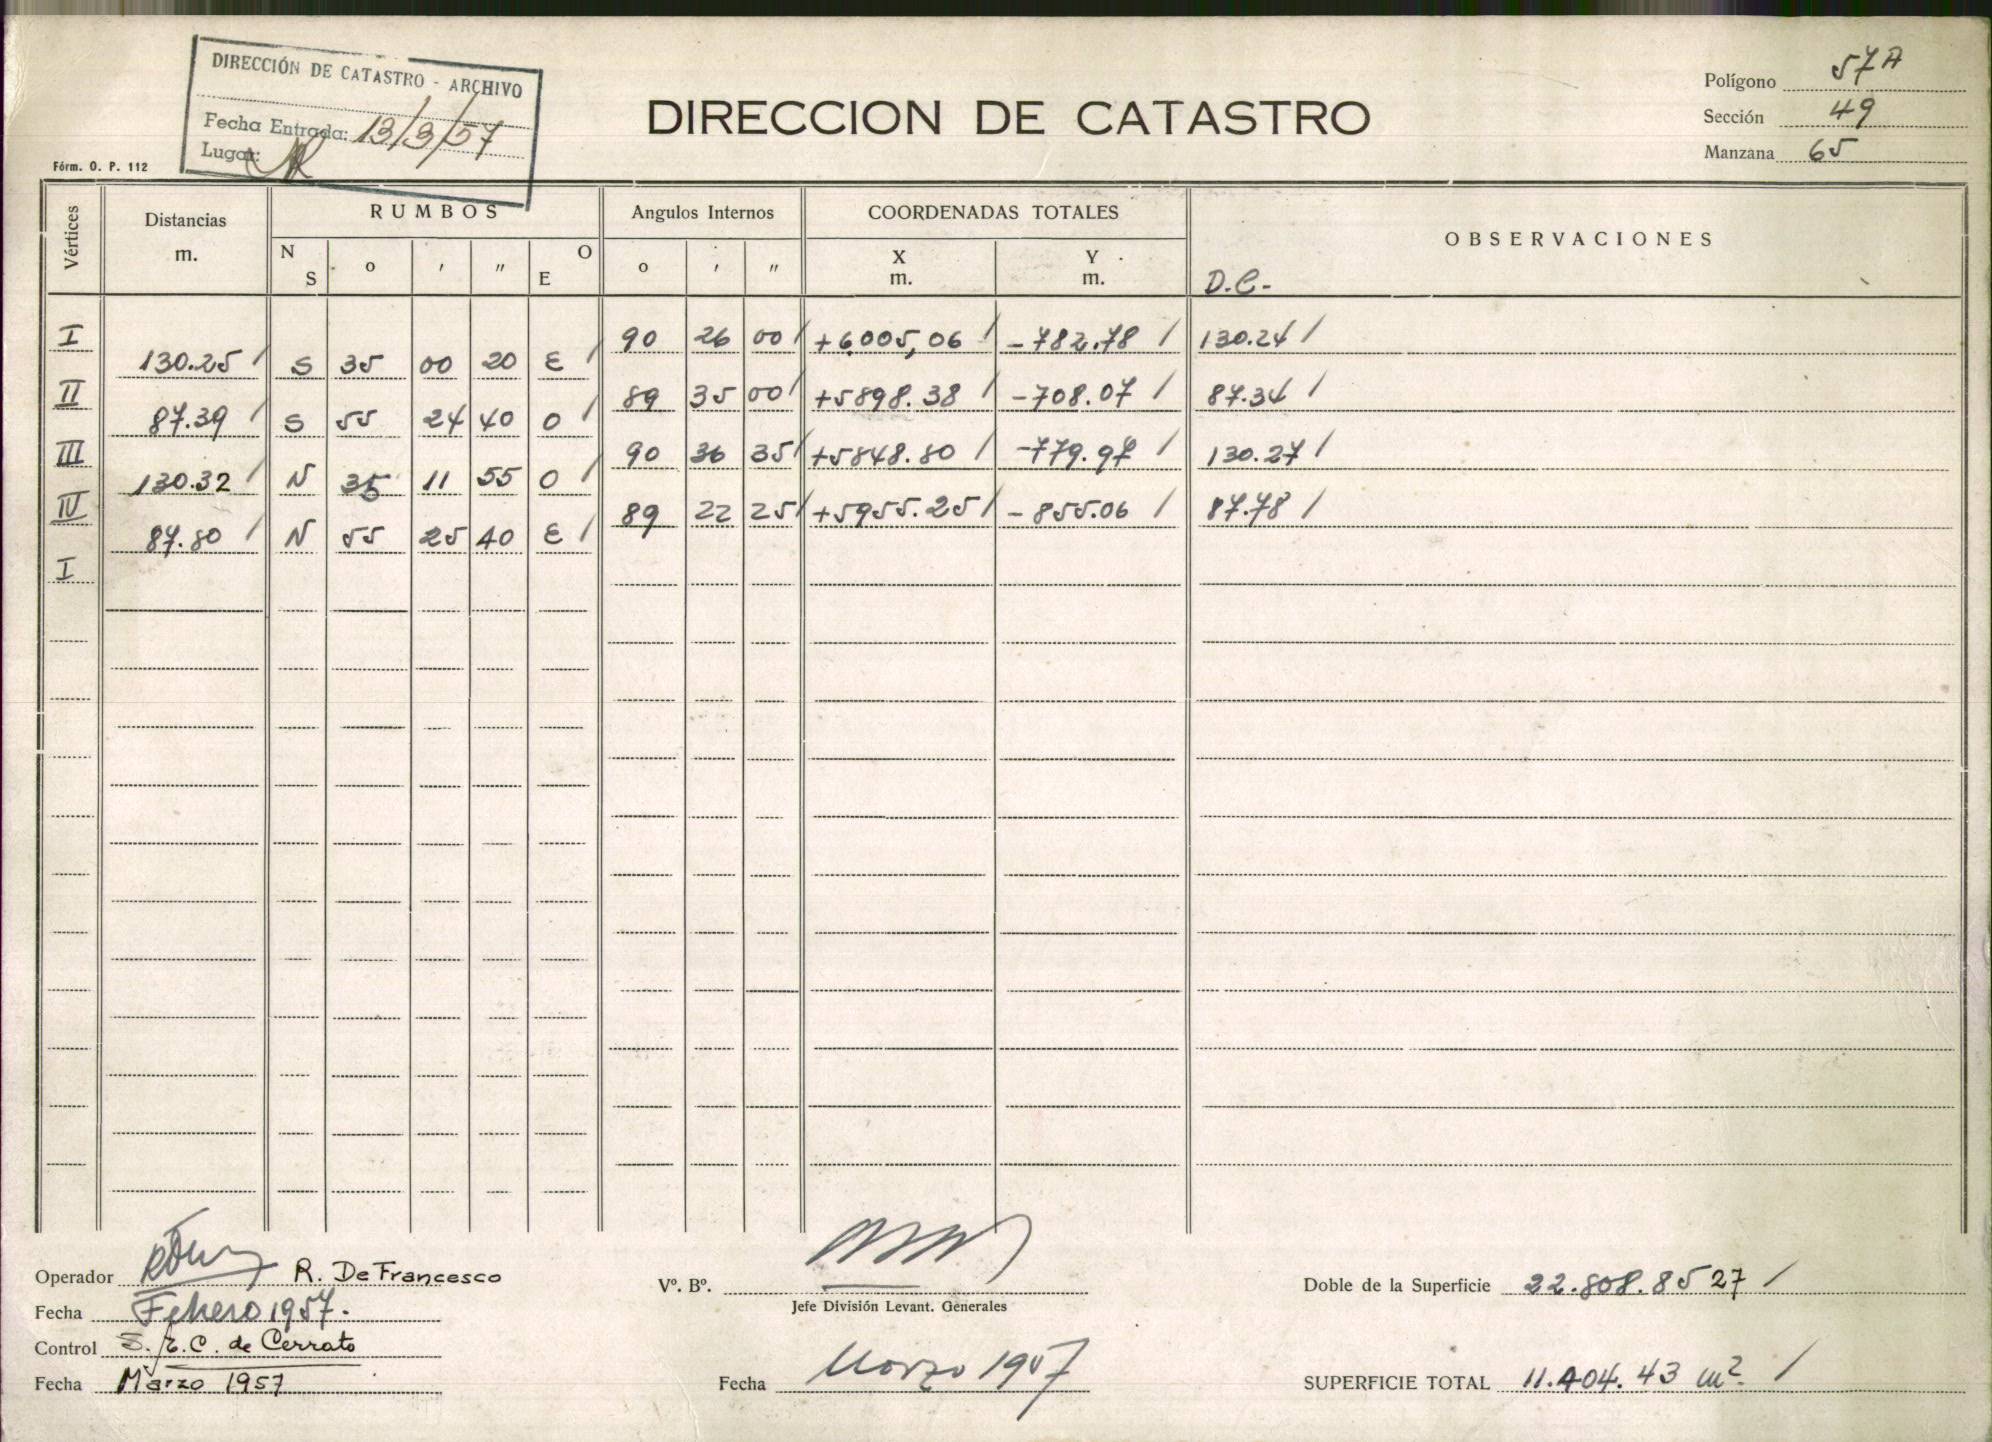 DIRECCIÓN DE CATASTRO - ARCHIVO
Fecha Entrada: 13/3/57
Lugar:
Fórm. O. P. 112
DIRECCION DE CATASTRO
Polígono 57A
Sección 49
Manzana 65
Vértices Distancias m. RUMBOS Angulos Internos COORDENADAS TOTALES OBSERVACIONES
N S o ' " O E o ' " X m. Y m. D.C.-
I 90 26 00 / +6.005,06 / -782.78 / 130.24 /
130.25 / S 35 00 20 E /
II 89 35 00 / +5898.38 / -708.07 / 87.34 /
87.39 / S 55 24 40 O /
III 90 36 35 / +5848.80 / -779.97 / 130.27 /
130.32 / N 35 11 55 O /
IV 89 22 25 / +5955.25 / -855.06 / 87.78 /
87.80 / N 55 25 40 E /
I
Operador R. De Francesco
Fecha Febrero 1957.
Control S. E.C. de Cerrato
Fecha Marzo 1957
Vº. Bº.
Jefe División Levant. Generales
Fecha Marzo 1957
Doble de la Superficie 22.808.8527 /
SUPERFICIE TOTAL 11.404.43 m². /